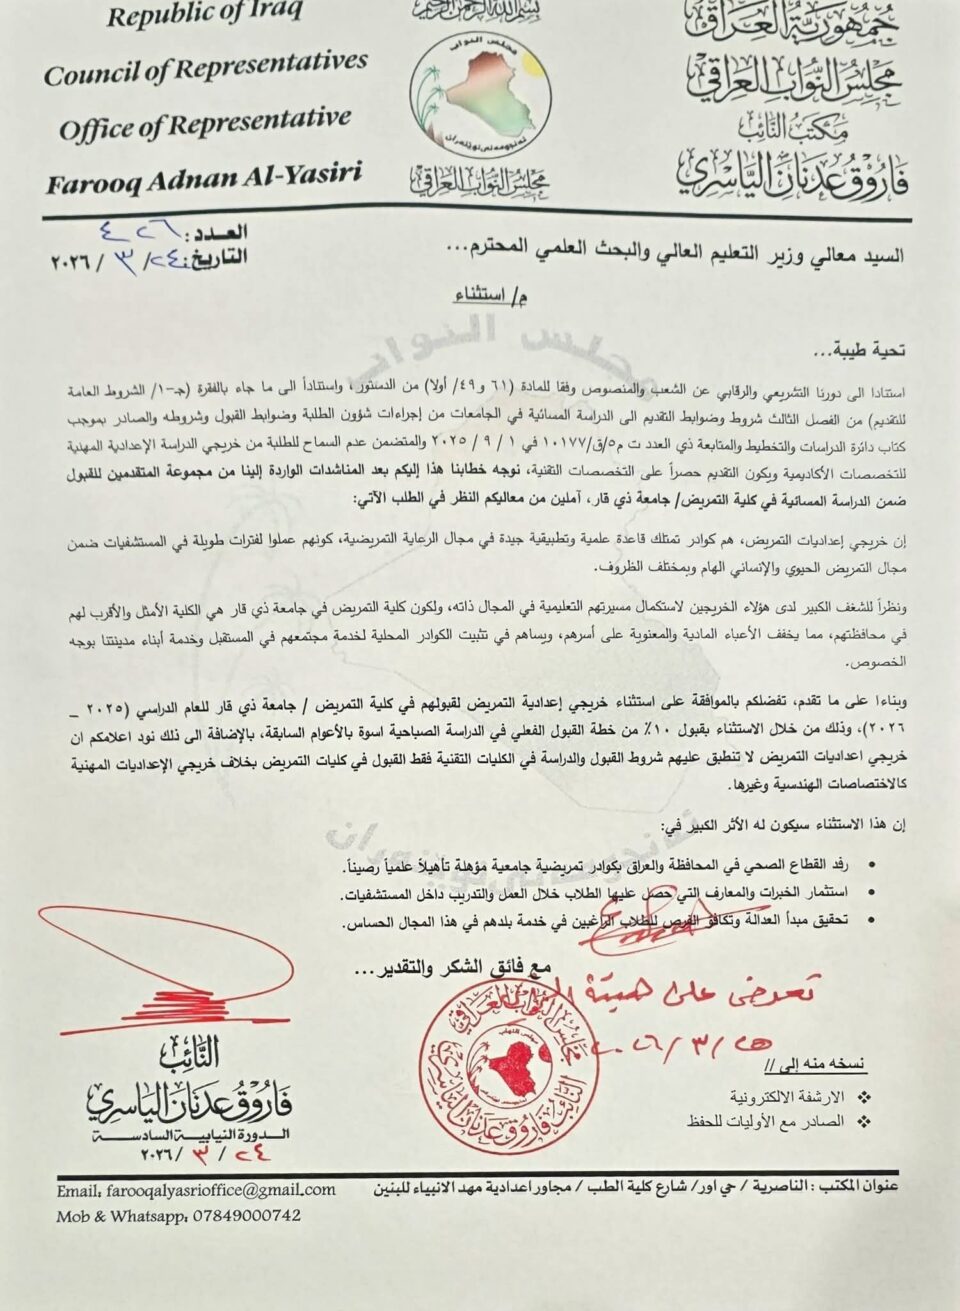 Republic of Iraq
Council of Representatives
Office of Representative
Farooq Adnan Al-Yasiri
بسم الله الرحمن الرحيم
مجلس النواب
ئەنجومەنی نوێنەران
مجلس النواب العراقي
جمهورية العراق
مجلس النواب العراقي
مكتب النائب
فاروق عدنان الياسري
العدد: ٤٢٦
التاريخ: ٢٤/ ٣ / ٢٠٢٦
السيد معالي وزير التعليم العالي والبحث العلمي المحترم...
م/ استثناء
تحية طيبة...
استنادا الى دورنا التشريعي والرقابي عن الشعب والمنصوص وفقا للمادة (٦١ و٤٩/ أولا) من الدستور، واستناداً الى ما جاء بالفقرة (جـ-١/ الشروط العامة
للتقديم) من الفصل الثالث شروط وضوابط التقديم الى الدراسة المسائية في الجامعات من إجراءات شؤون الطلبة وضوابط القبول وشروطه والصادر بموجب
كتاب دائرة الدراسات والتخطيط والمتابعة ذي العدد ت م٥/ق/١٠١٧٧ في ١ / ٩ / ٢٠٢٥ والمتضمن عدم السماح للطلبة من خريجي الدراسة الإعدادية المهنية
للتخصصات الأكاديمية ويكون التقديم حصراً على التخصصات التقنية، نوجه خطابنا هذا إليكم بعد المناشدات الواردة إلينا من مجموعة المتقدمين للقبول
ضمن الدراسة المسائية في كلية التمريض/ جامعة ذي قار، آملين من معاليكم النظر في الطلب الآتي:
إن خريجي إعداديات التمريض، هم كوادر تمتلك قاعدة علمية وتطبيقية جيدة في مجال الرعاية التمريضية، كونهم عملوا لفترات طويلة في المستشفيات ضمن
مجال التمريض الحيوي والإنساني الهام وبمختلف الظروف.
ونظراً للشغف الكبير لدى هؤلاء الخريجين لاستكمال مسيرتهم التعليمية في المجال ذاته، ولكون كلية التمريض في جامعة ذي قار هي الكلية الأمثل والأقرب لهم
في محافظتهم، مما يخفف الأعباء المادية والمعنوية على أسرهم، ويساهم في تثبيت الكوادر المحلية لخدمة مجتمعهم في المستقبل وخدمة أبناء مدينتنا بوجه
الخصوص.
وبناءا على ما تقدم، تفضلكم بالموافقة على استثناء خريجي إعدادية التمريض لقبولهم في كلية التمريض / جامعة ذي قار للعام الدراسي (٢٠٢٥ _
٢٠٢٦)، وذلك من خلال الاستثناء بقبول ١٠٪ من خطة القبول الفعلي في الدراسة الصباحية اسوة بالأعوام السابقة، بالإضافة الى ذلك نود اعلامكم ان
خريجي اعداديات التمريض لا تنطبق عليهم شروط القبول والدراسة في الكليات التقنية فقط القبول في كليات التمريض بخلاف خريجي الإعداديات المهنية
كالاختصاصات الهندسية وغيرها.
إن هذا الاستثناء سيكون له الأثر الكبير في:
• رفد القطاع الصحي في المحافظة والعراق بكوادر تمريضية جامعية مؤهلة تأهيلاً علمياً رصيناً.
• استثمار الخبرات والمعارف التي حصل عليها الطلاب خلال العمل والتدريب داخل المستشفيات.
• تحقيق مبدأ العدالة وتكافؤ الفرص للطلاب الراغبين في خدمة بلدهم في هذا المجال الحساس.
مع فائق الشكر والتقدير...
تعرض على هيئة
٢٥/ ٣/ ٢٠٢٦
مجلس النواب العراقي
النائب فاروق عدنان الياسري
النائب
فاروق عدنان الياسري
الدورة النيابية السادسة
٢٤ / ٣ / ٢٠٢٦
نسخه منه إلى //
❖ الارشفة الالكترونية
❖ الصادر مع الأوليات للحفظ
عنوان المكتب : الناصرية / حي اور/ شارع كلية الطب / مجاور اعدادية مهد الانبياء للبنين
Email: farooqalyasrioffice@gmail.com
Mob & Whatsapp: 07849000742